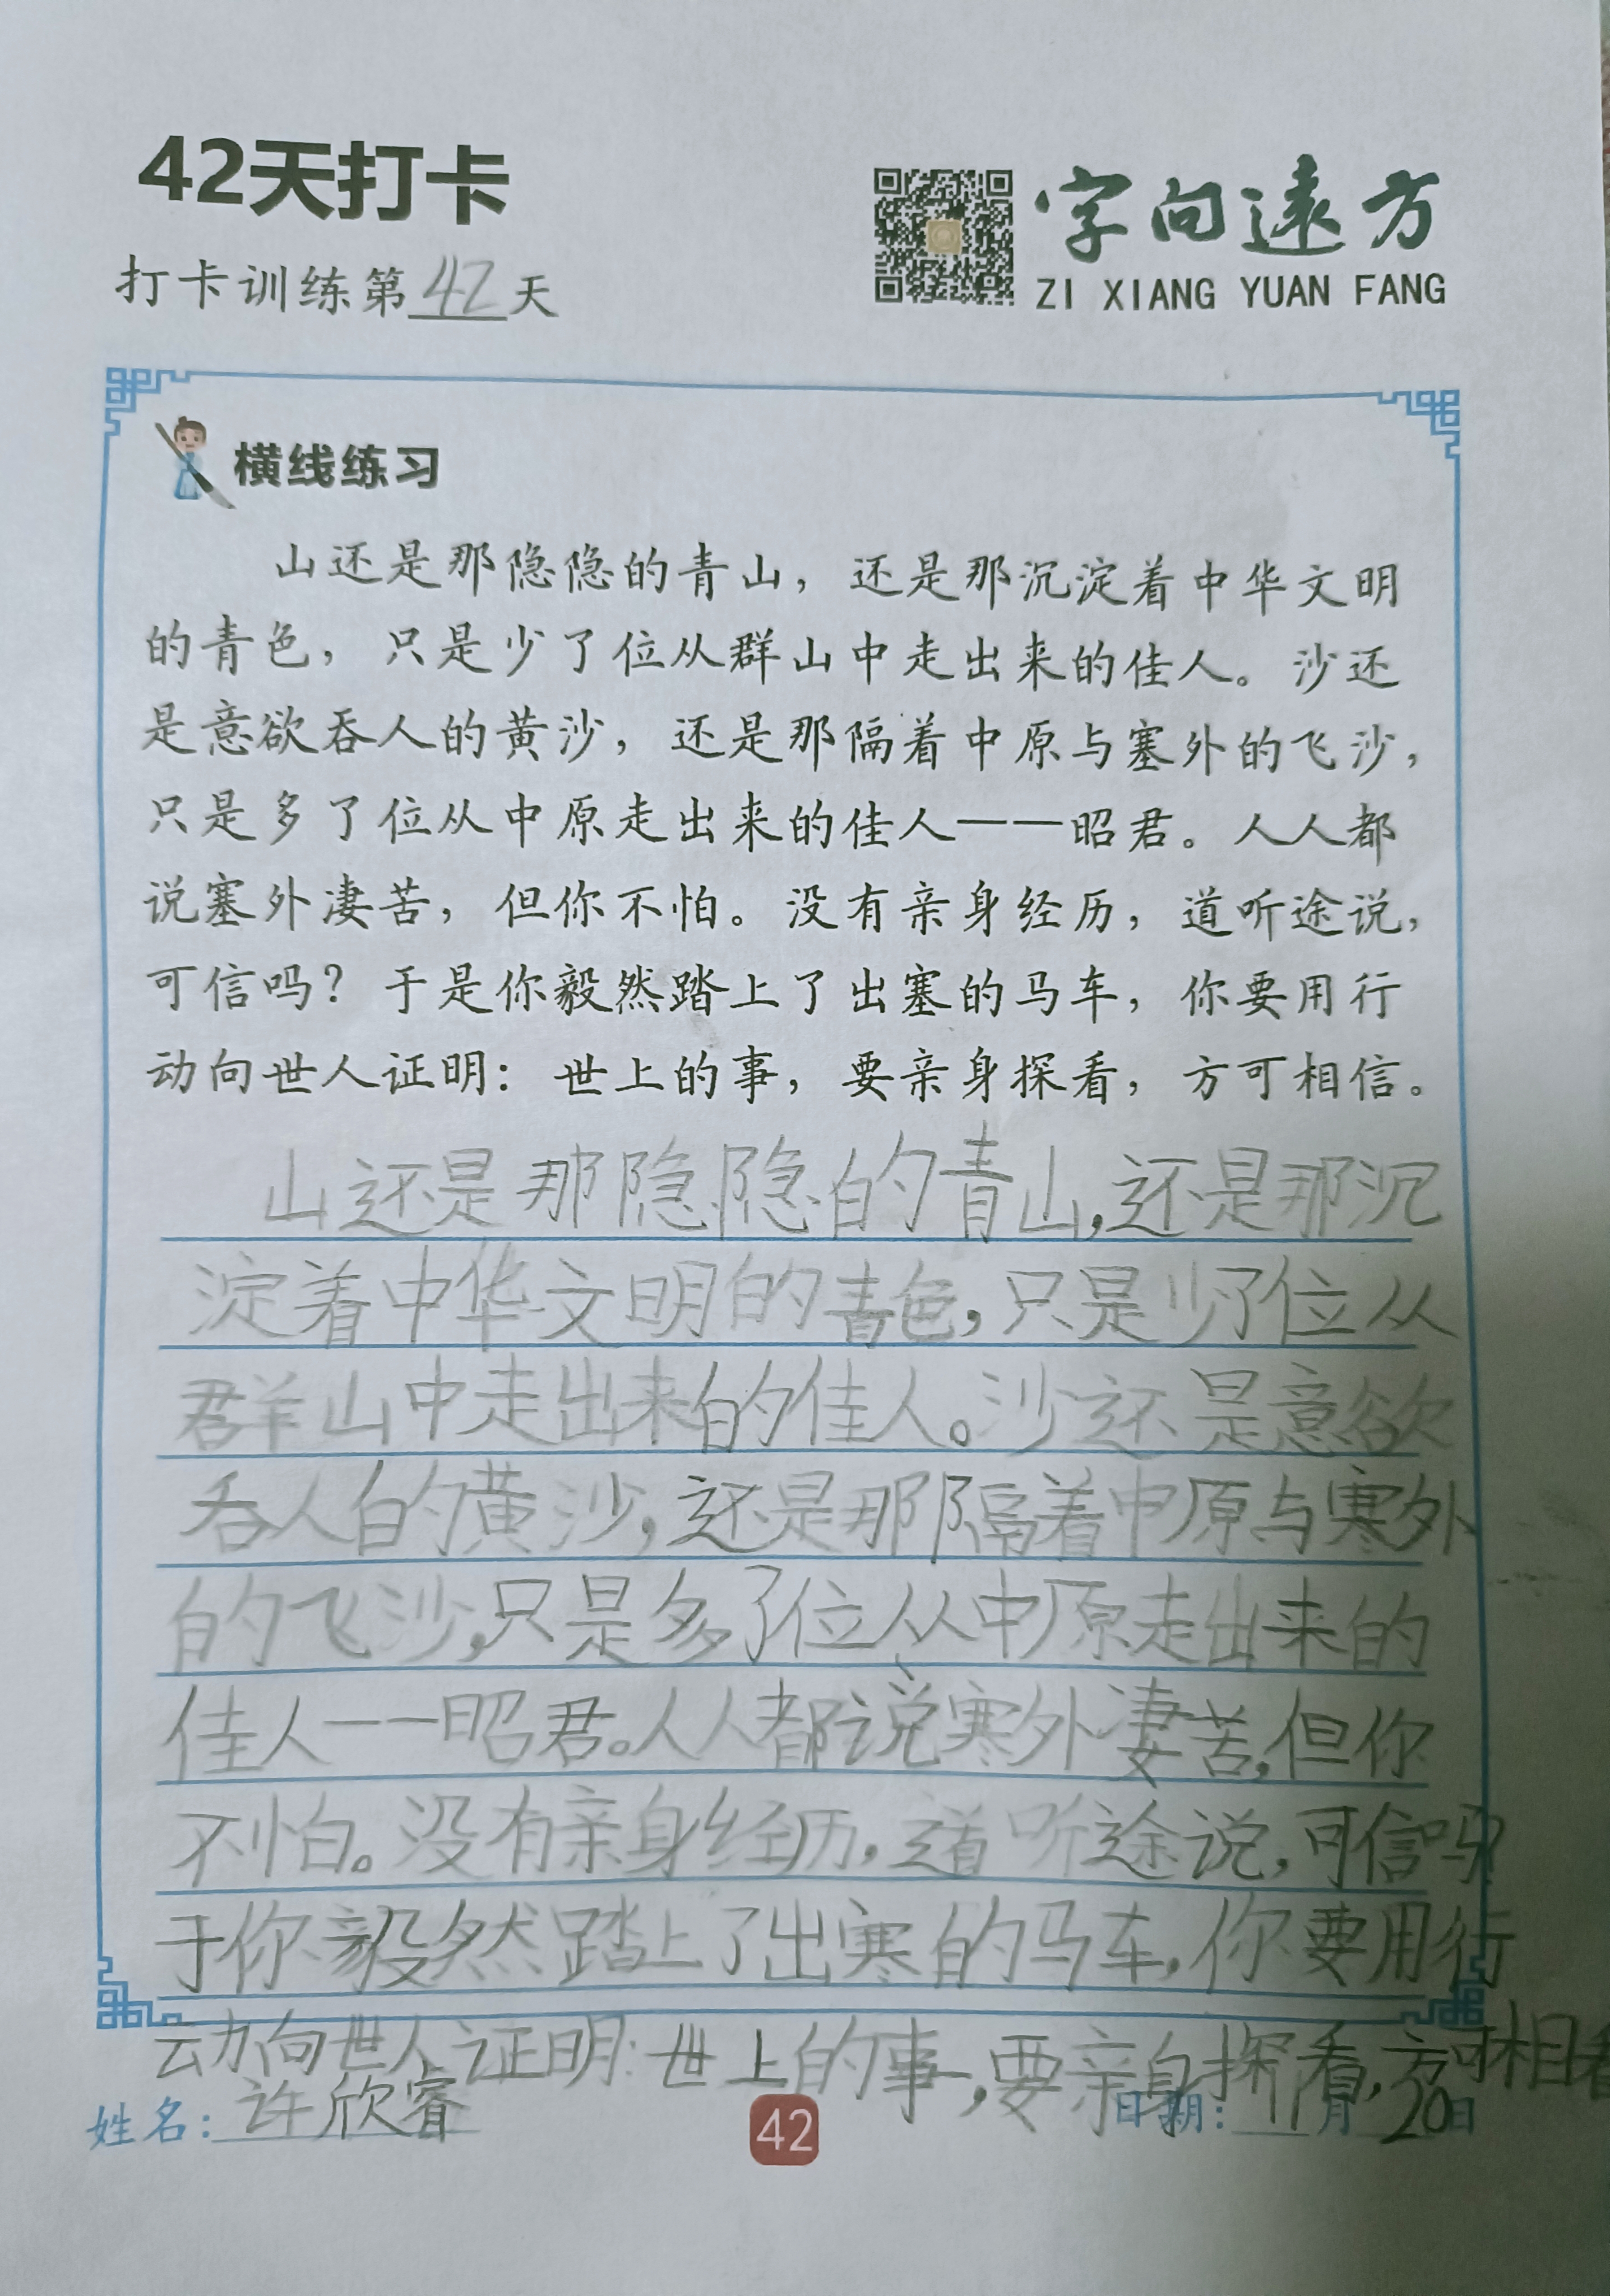 42天打卡
字向遠方
打卡训练第42天
ZI XIANG YUAN FANG
横线练习
山还是那隐隐的青山，还是那沉淀着中华文明
的青色，只是少了位从群山中走出来的佳人。沙还
是意欲吞人的黄沙，还是那隔着中原与塞外的飞沙，
只是多了位从中原走出来的佳人——昭君。人人都
说塞外凄苦，但你不怕。没有亲身经历，道听途说，
可信吗？于是你毅然踏上了出塞的马车，你要用行
动向世人证明：世上的事，要亲身探看，方可相信。
山还是那隐隐的青山，还是那沉
淀着中华文明的青色，只是少了位从
群山中走出来的佳人。沙还是意欲
吞人的黄沙，还是那隔着中原与寒外
的飞沙，只是多了位从中原走出来的
佳人——昭君。人人都说寒外凄苦，但你
不怕。没有亲身经历，道听途说，可信吗？
于你毅然踏上了出寒的马车，你要用行
动向世人证明：世上的事，要亲身探看，方可相看
姓名：许欣睿
42
日期：11月20日